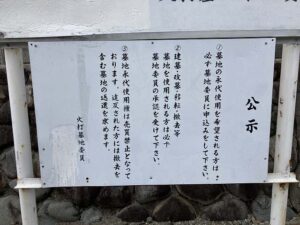 公示
①墓地の永代使用を希望される方は
必ず墓地委員に申込みをして下さい。
②建墓・改墓・移転・撤去等
墓地を使用される方は必ず
墓地委員の承認を受けて下さい。
③墓地の永代使用権は売買禁止となって
おります。違反された方には撤去を
含む墓地の返還を求めます。
火打墓地委員